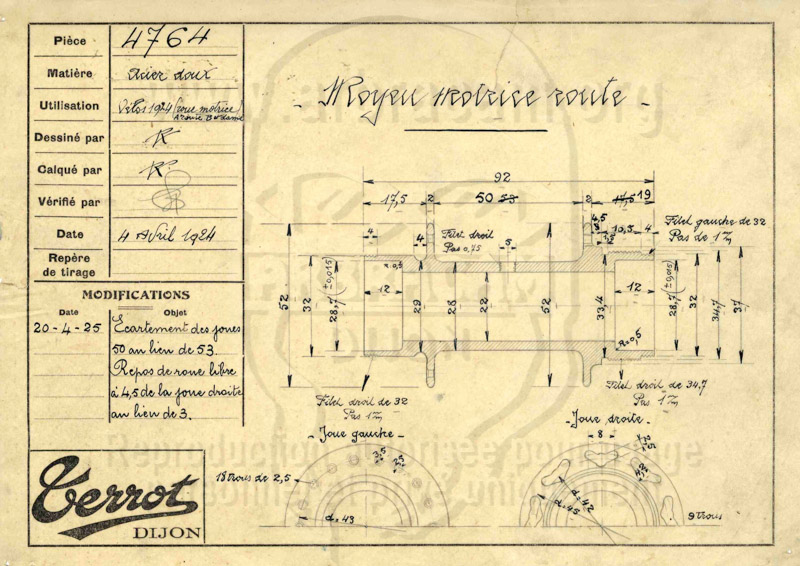 Pièce 4764
Matière Acier doux
Utilisation Vélos 1924 (roue motrice)
Dessiné par R
Calqué par R
Vérifié par
Date 4 Avril 1924
Repère
de tirage
MODIFICATIONS
Date Objet
20-4-25 Ecartement des joues
50 au lieu de 53.
Repos de roue libre
à 4,5 de la joue droite
au lieu de 3.
Terrot
DIJON
Moyeu motrice route
92
17,5 2 50 53 2 17,5 19
4,5
3 10,5 4
1,5
4 4 5
Filet droit
Pas 0,75
Filet gauche de 32
Pas de 1%
R=0,5
12 12
52 32 28,7 (±0,015) 29 28 22 52 33,4 28,7 (±0,015) 32 34,7 37
R=0,5
Filet droit de 32
Pas 1%
Filet droit de 34,7
Pas 1%
Joue gauche
18 trous de 2,5
d=43
Joue droite
8
d=42
d=45
9 trous